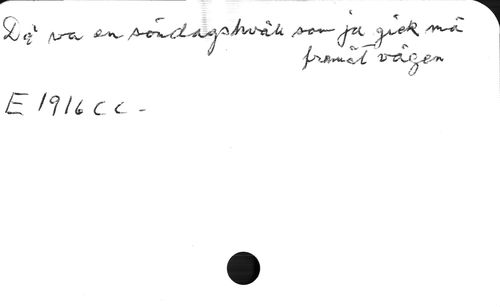 Dę va en söndagskväll som ja gick mä
framåt vägen
E 1916 C C -